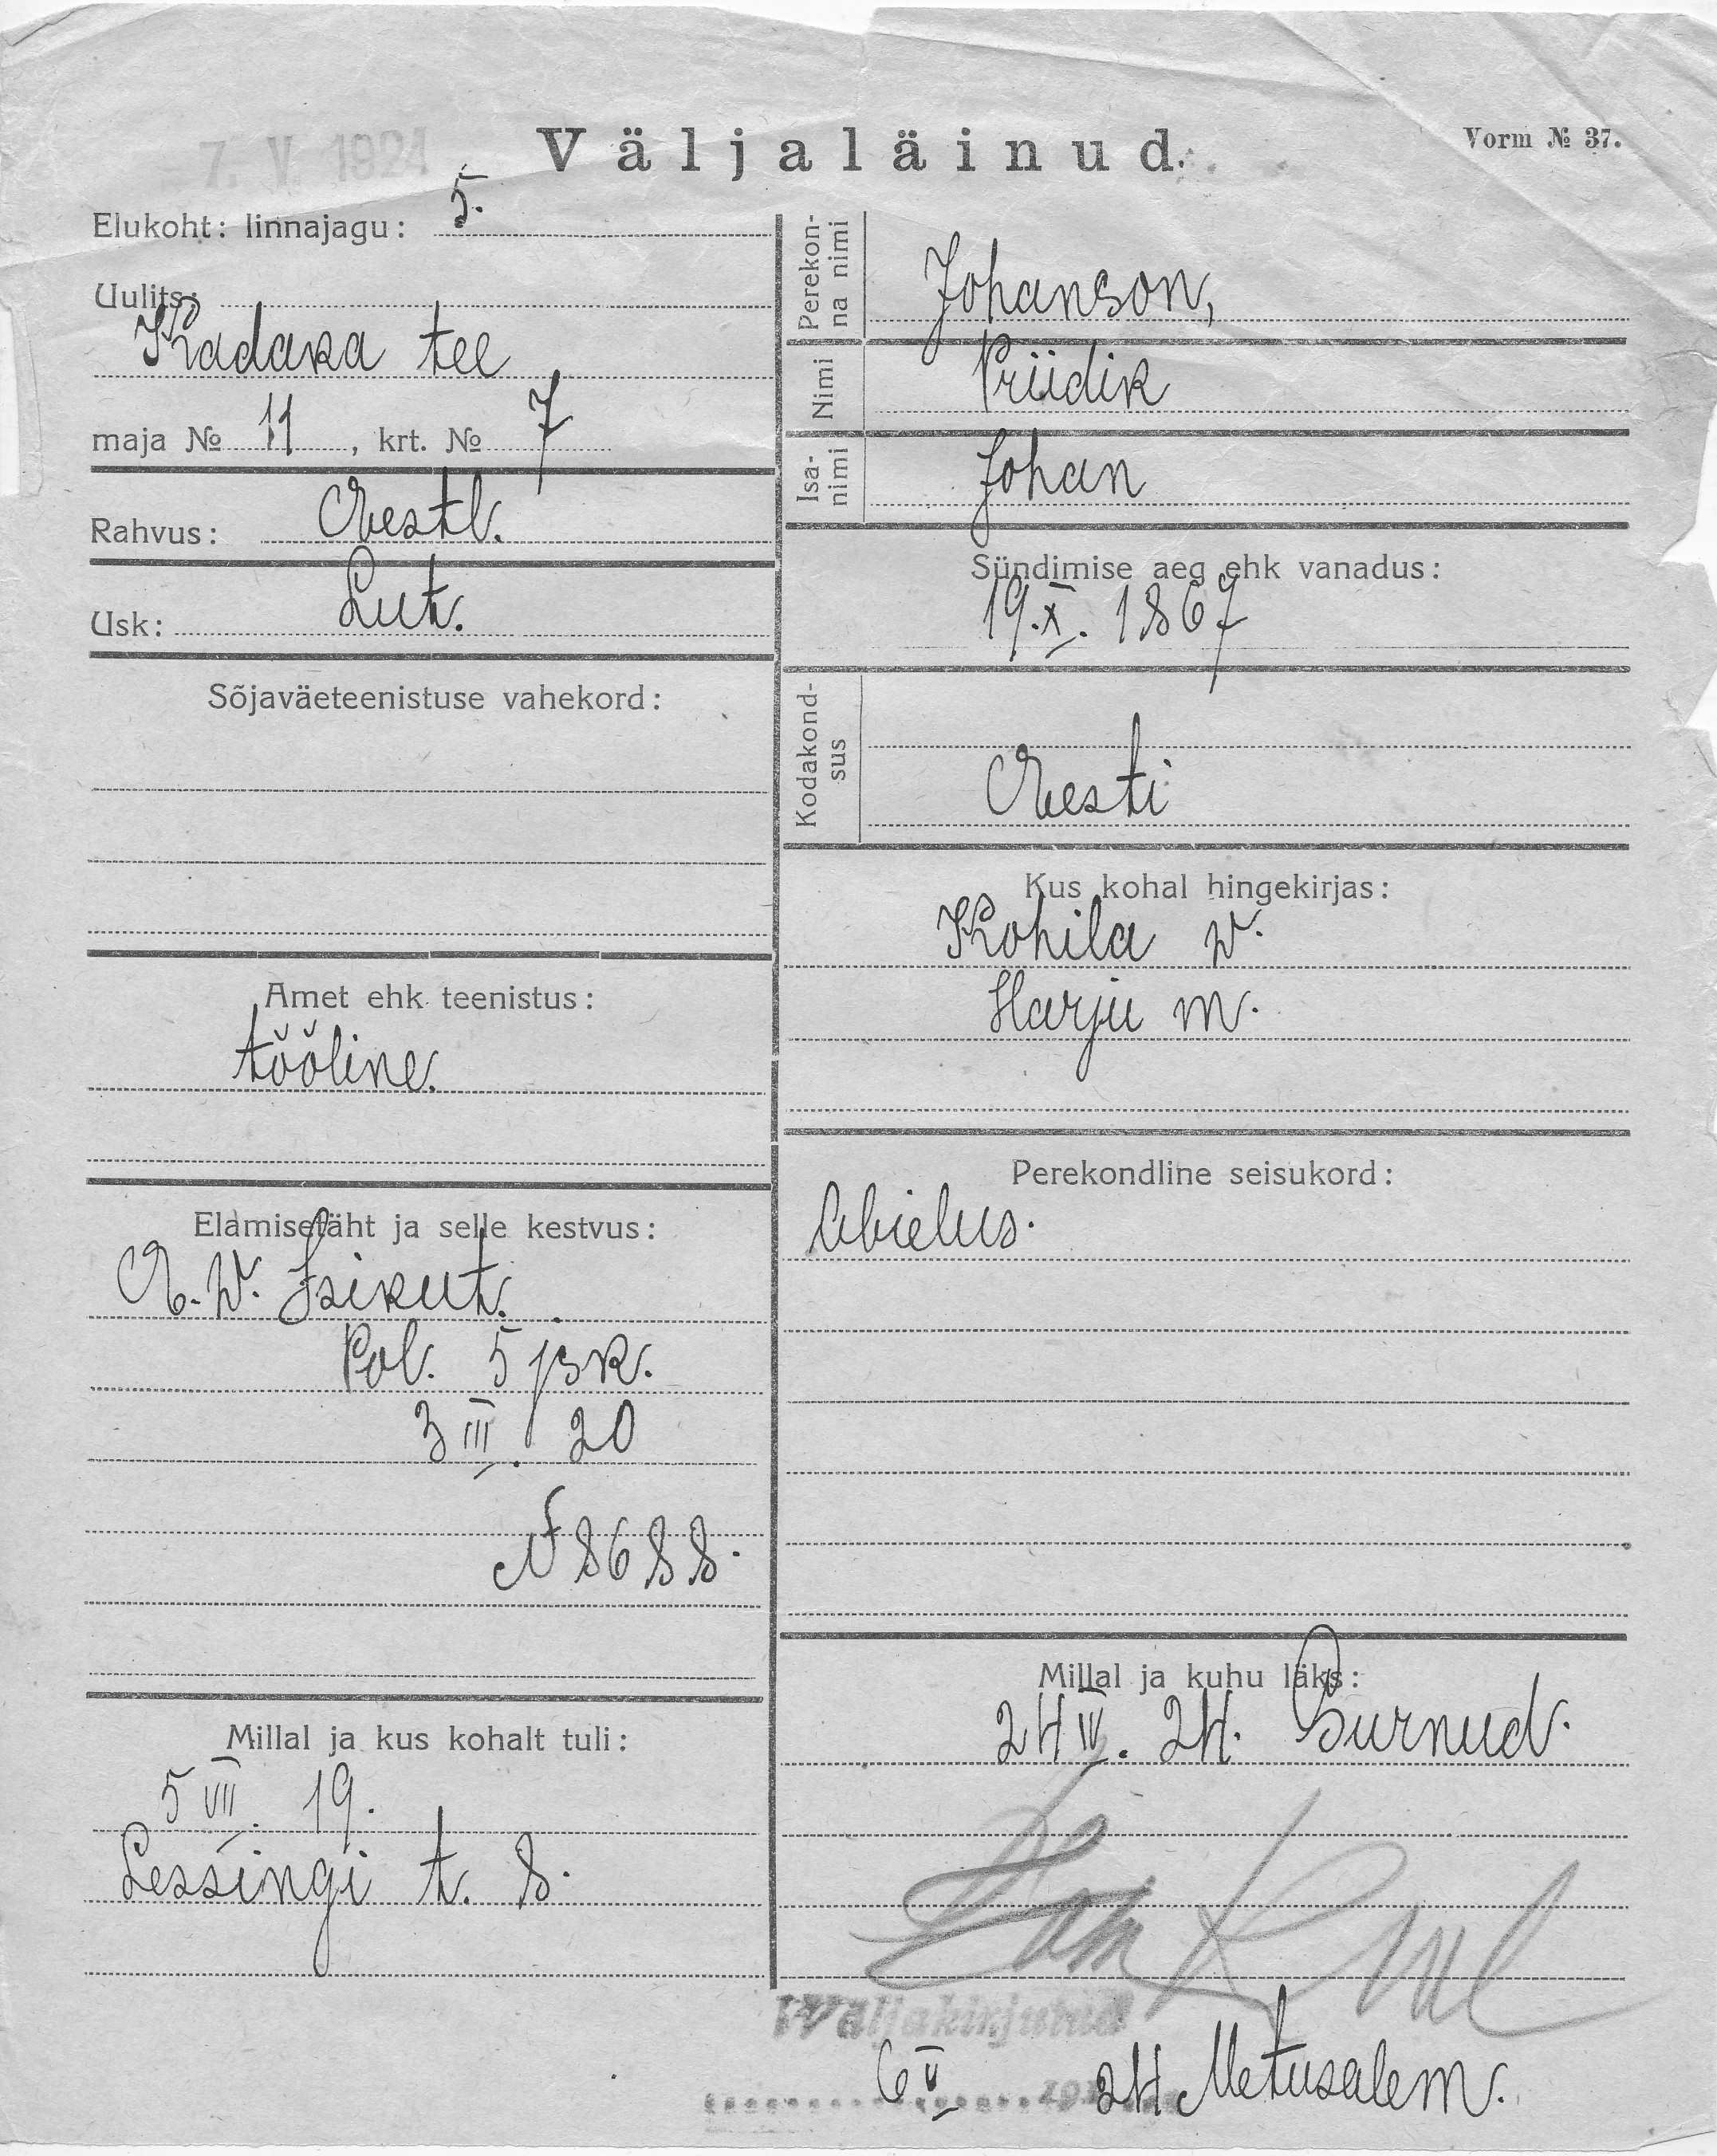 7. V. 1924
Väljaläinud.
Vorm № 37.
Elukoht: linnajagu: 5.
Uulits:
Kadaka tee
maja № 11, krt. № 7
Rahvus: Eestl.
Usk: Lut.
Sõjaväeteenistuse vahekord:
Amet ehk teenistus:
tööline.
Elamisetäht ja selle kestvus:
E. W. Isikut.
Pol. 5 jsk.
3 III. 20
№ 8688.
Millal ja kus kohalt tuli:
5 VII. 19.
Lessingi t. 8.
Perekonna nimi Johanson,
Nimi Priidik
Isanimi Johan
Sündimise aeg ehk vanadus:
19. X. 1867
Kodakondsus
Eesti
Kus kohal hingekirjas:
Kohila w.
Harju m.
Perekondline seisukord:
Abielus.
Millal ja kuhu läks:
24 IV. 24. Surnud.
Wäljakirjutud
6 V 24 Metusalem.